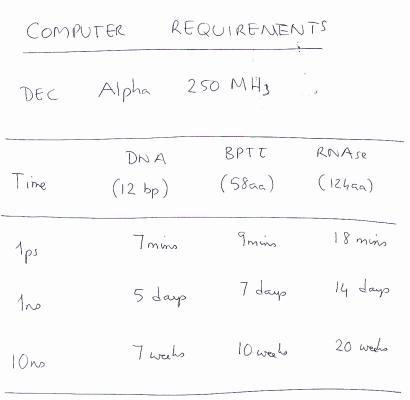 COMPUTER REQUIREMENTS
DEC Alpha 250 MHz
DNA BPTI RNAse
Time (12 bp) (58aa) (124aa)
1ps 7 mins 9 mins 18 mins
1ns 5 days 7 days 14 days
10ns 7 weeks 10 weeks 20 weeks